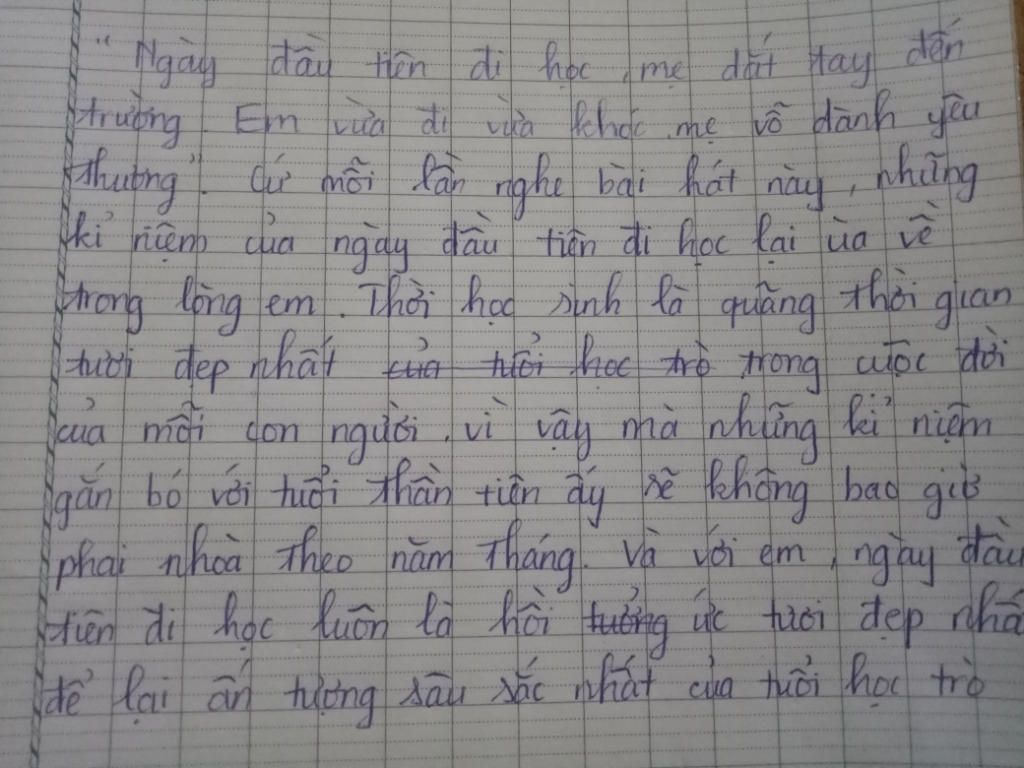 "Ngày đầu tiên đi học, mẹ dắt tay đến
trường. Em vừa đi vừa khóc, mẹ vỗ dành yêu
thương". Cứ mỗi lần nghe bài hát này, những
kỉ niệm của ngày đầu tiên đi học lại ùa về
trong lòng em. Thời học sinh là quãng thời gian
tươi đẹp nhất của tuổi học trò trong cuộc đời
của mỗi con người, vì vậy mà những kỉ niệm
gắn bó với tuổi thần tiên ấy sẽ không bao giờ
phai nhoà theo năm tháng. Và với em, ngày đầu
tiên đi học luôn là hồi tưởng ức tươi đẹp nhấ
để lại ấn tượng sâu sắc nhất của tuổi học trò